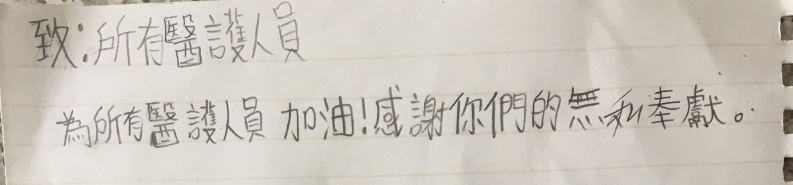 致:所有醫護人員
為所有醫護人員 加油!感謝你們的無私奉獻。